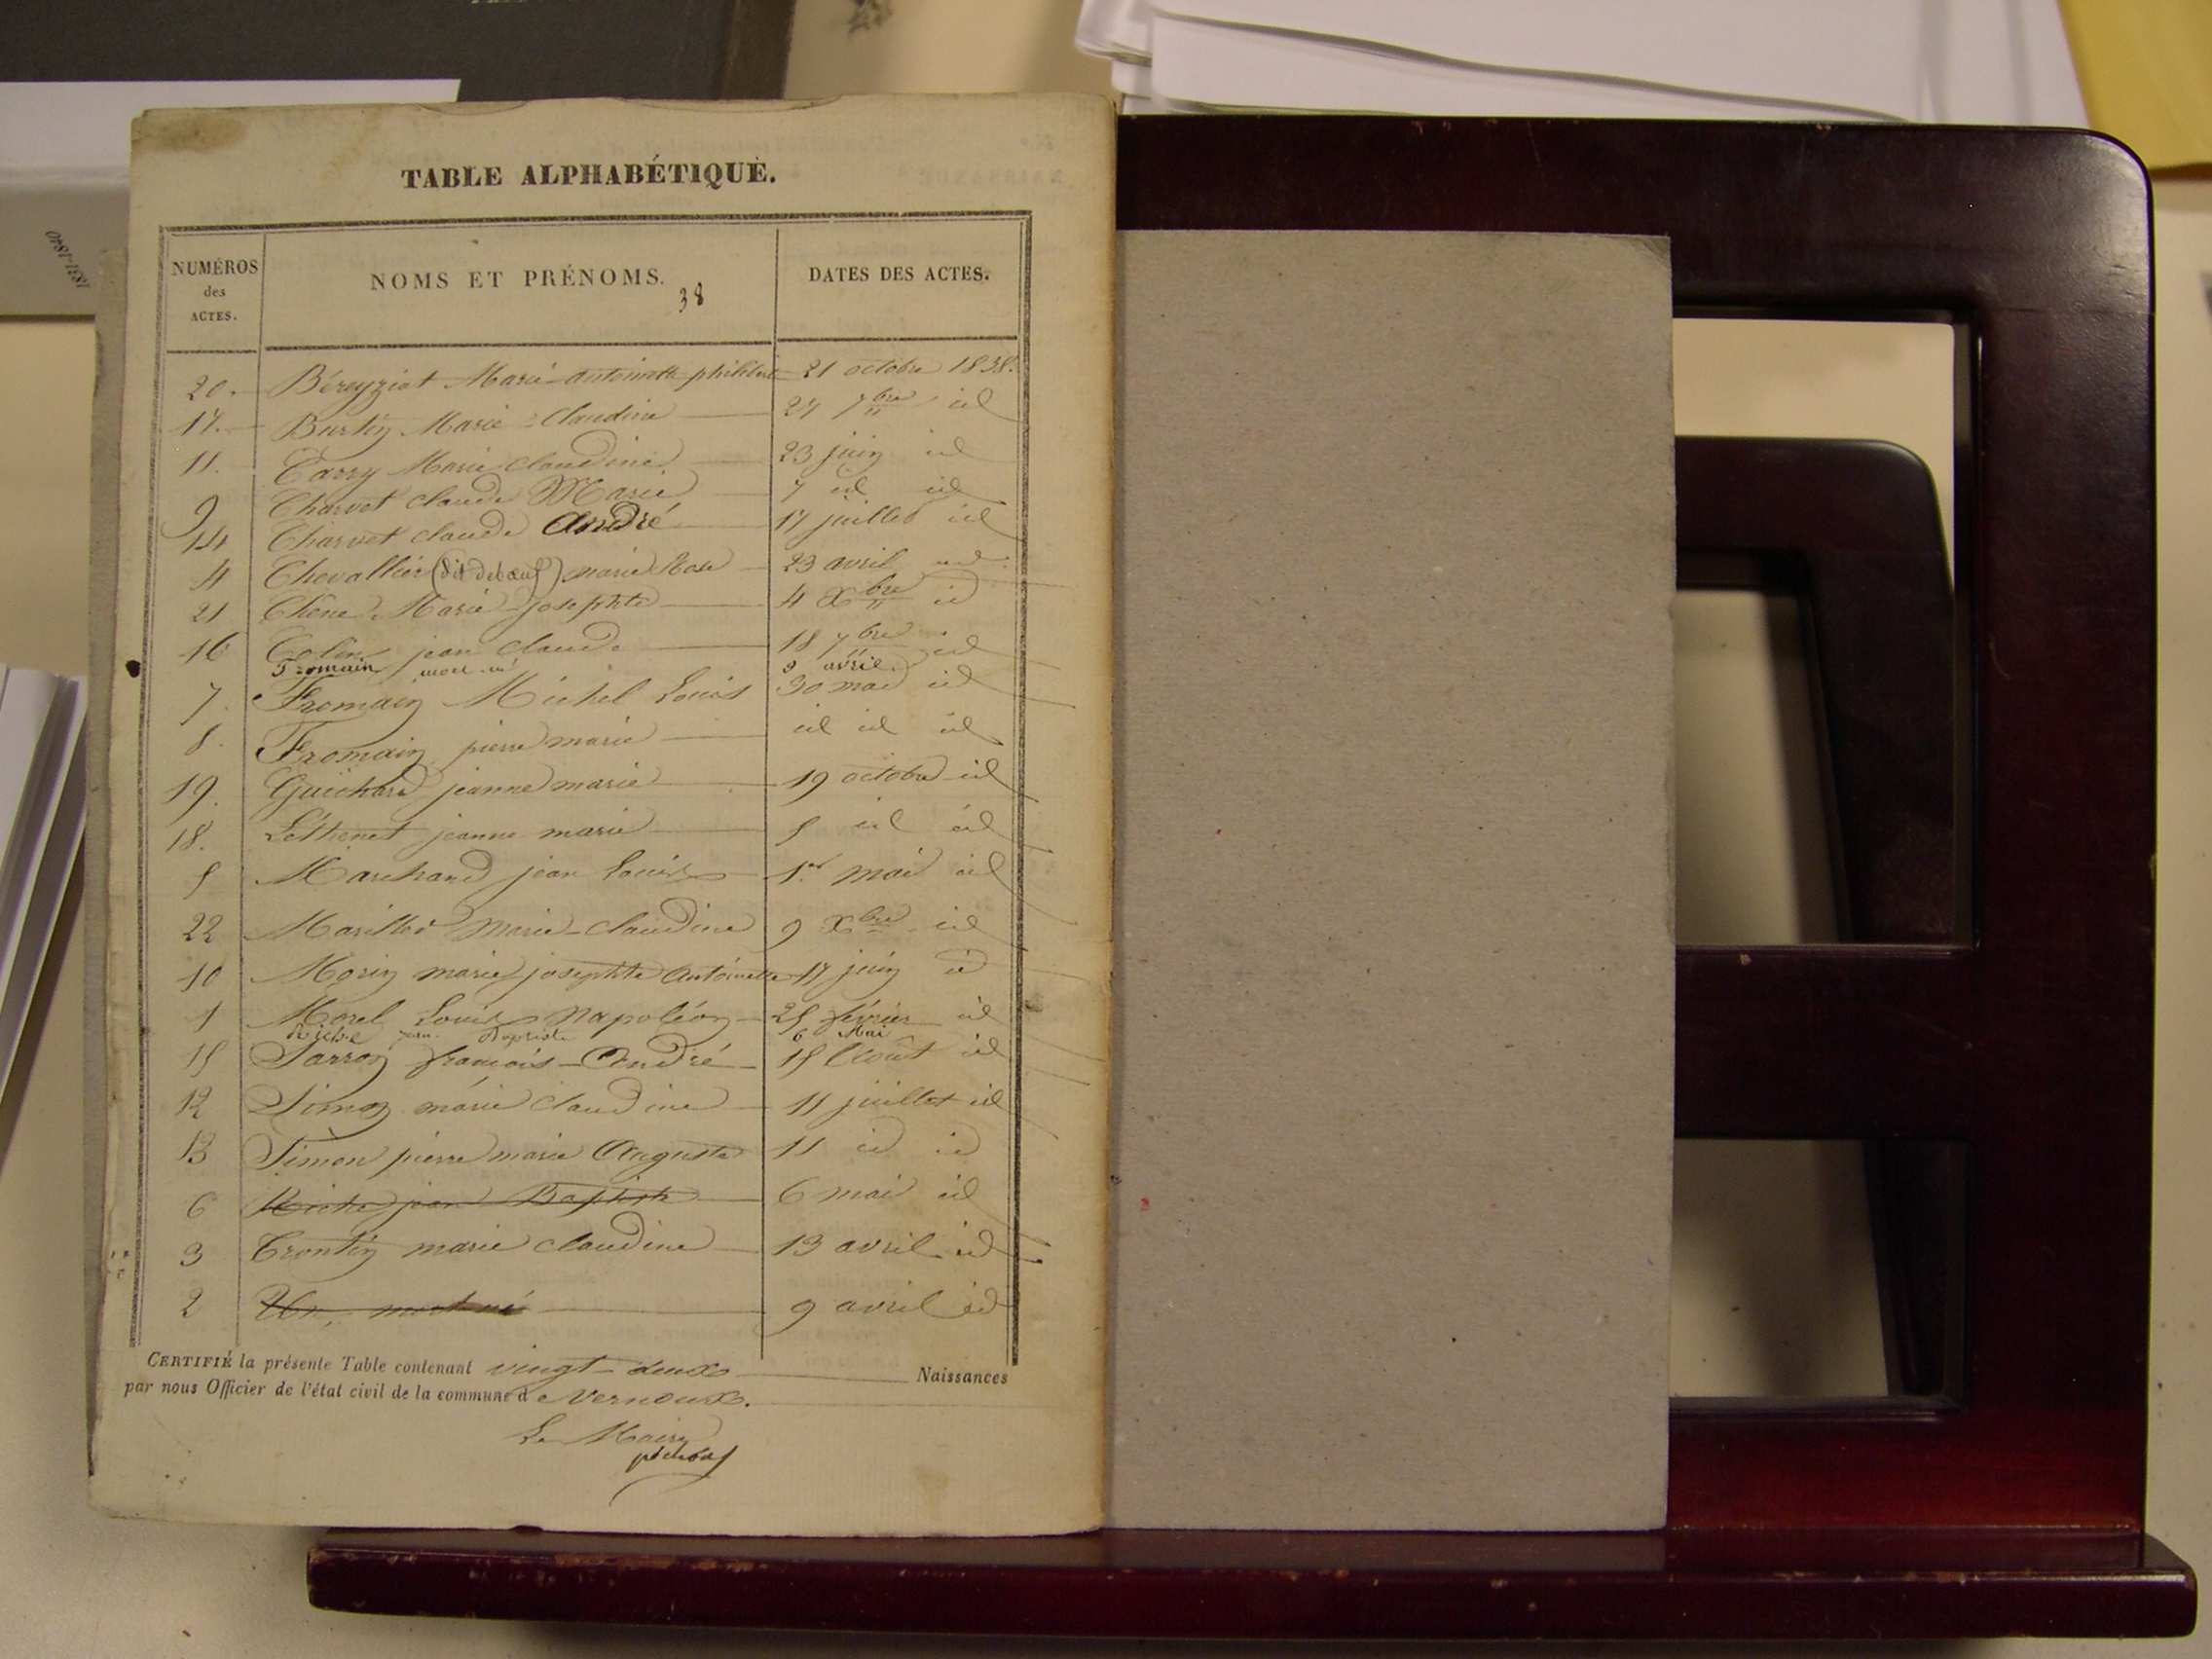 1831-1840
TABLE ALPHABÉTIQUE.
NUMÉROS des ACTES.
NOMS ET PRÉNOMS. 38
DATES DES ACTES.
20. Béreyziat Marie-antoinette philiberte 21 octobre 1838.
17. Burtin Marie-Claudine 27 7bre id
11. Carry Marie Claudine 23 juin id
9 Charvet claude Marie 7 id id
14 Charvet claude André 17 juillet id
4 Chevallier (dit debœuf) marie Rose 23 avril id
21 Chêne Marie josephte 4 Xbre id
16 Colin jean claude 18 7bre id
Fromain mort né 9 avril
7. Fromain Michel Louis 30 mai id
8. Fromain pierre marie id id id
19. Guichard jeanne marie 19 octobre id
18. Léthenet jeanne marie 5 id id
5 Marchand jean Louis 1er mai id
22 Marillet Marie-claudine 9 Xbre id
10 Morin marie josephte Antoinette 17 juin id
1 Morel Louis Napoléon 25 février id
Riche jean Baptiste 6 Mai
15 Sarron françois-André 15 Août id
12 Simon marie claudine 11 juillet id
13 Simon pierre marie Auguste 11 id id
6 Riche jean Baptiste 6 mai id
3 Trontin marie claudine 13 avril id
2 Un mort né 9 avril id
CERTIFIÉ la présente Table contenant vingt-deux Naissances
par nous Officier de l'état civil de la commune de Vernoux.
Le Maire